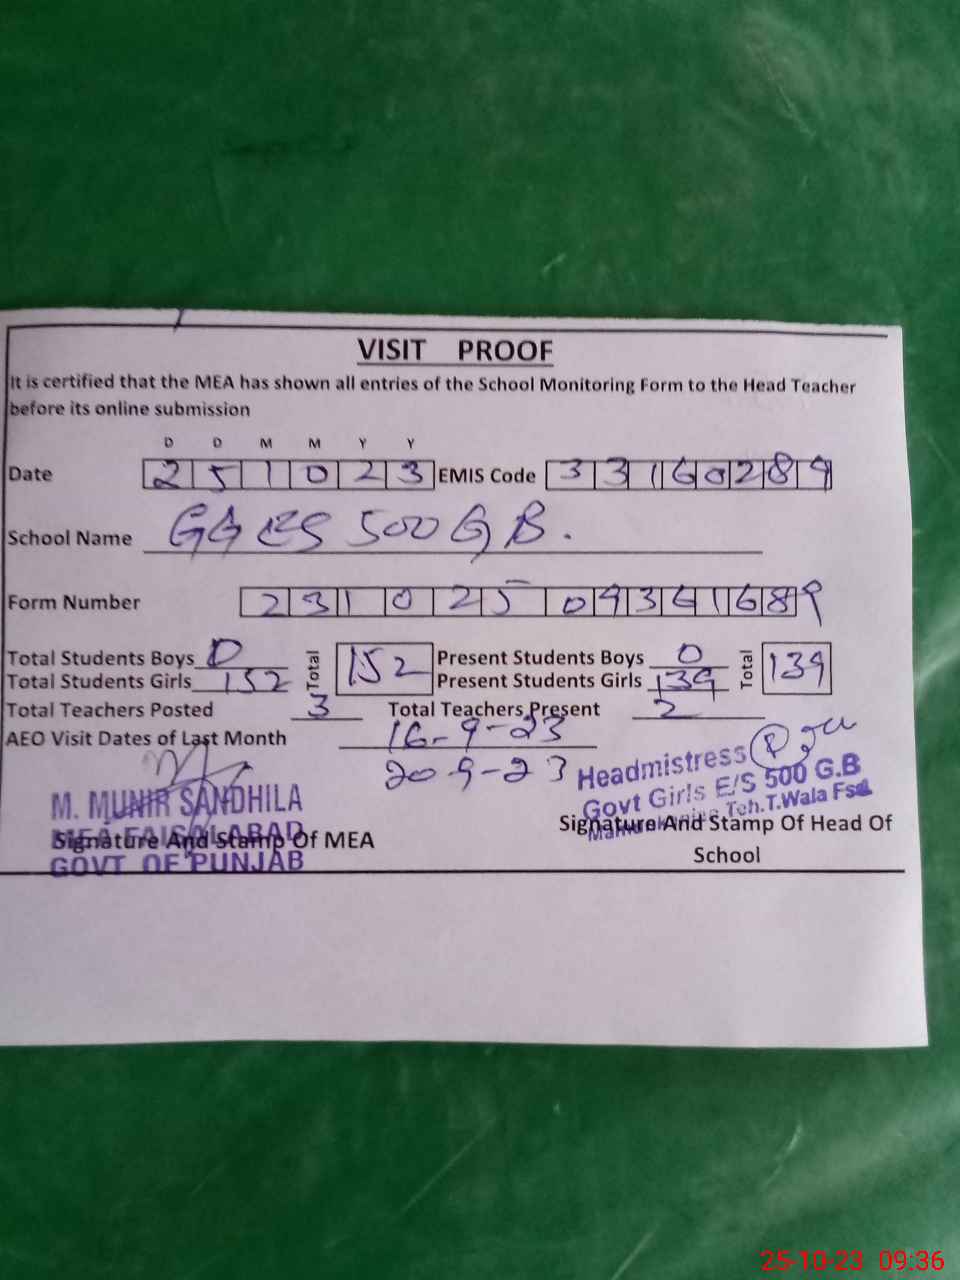 VISIT PROOF
It is certified that the MEA has shown all entries of the School Monitoring Form to the Head Teacher
before its online submission
D D M M Y Y
Date 2 5 1 0 2 3 EMIS Code 3 3 1 6 0 2 8 9
School Name GGES 500 GB.
Form Number 2 3 1 0 2 5 0 9 3 6 1 6 8 9
Total Students Boys 0 Total 152 Present Students Boys 0 Total 139
Total Students Girls 152 Present Students Girls 139
Total Teachers Posted 3 Total Teachers Present 2
AEO Visit Dates of Last Month 16-9-23
20-9-23
Headmistress
Govt Girls E/S 500 G.B
Teh.T.Wala Fsd
M. MUNIR SANDHILA
MEA FAISALABAD
GOVT OF PUNJAB
Signature And Stamp Of MEA
Signature And Stamp Of Head Of
School
25-10-23 09:36